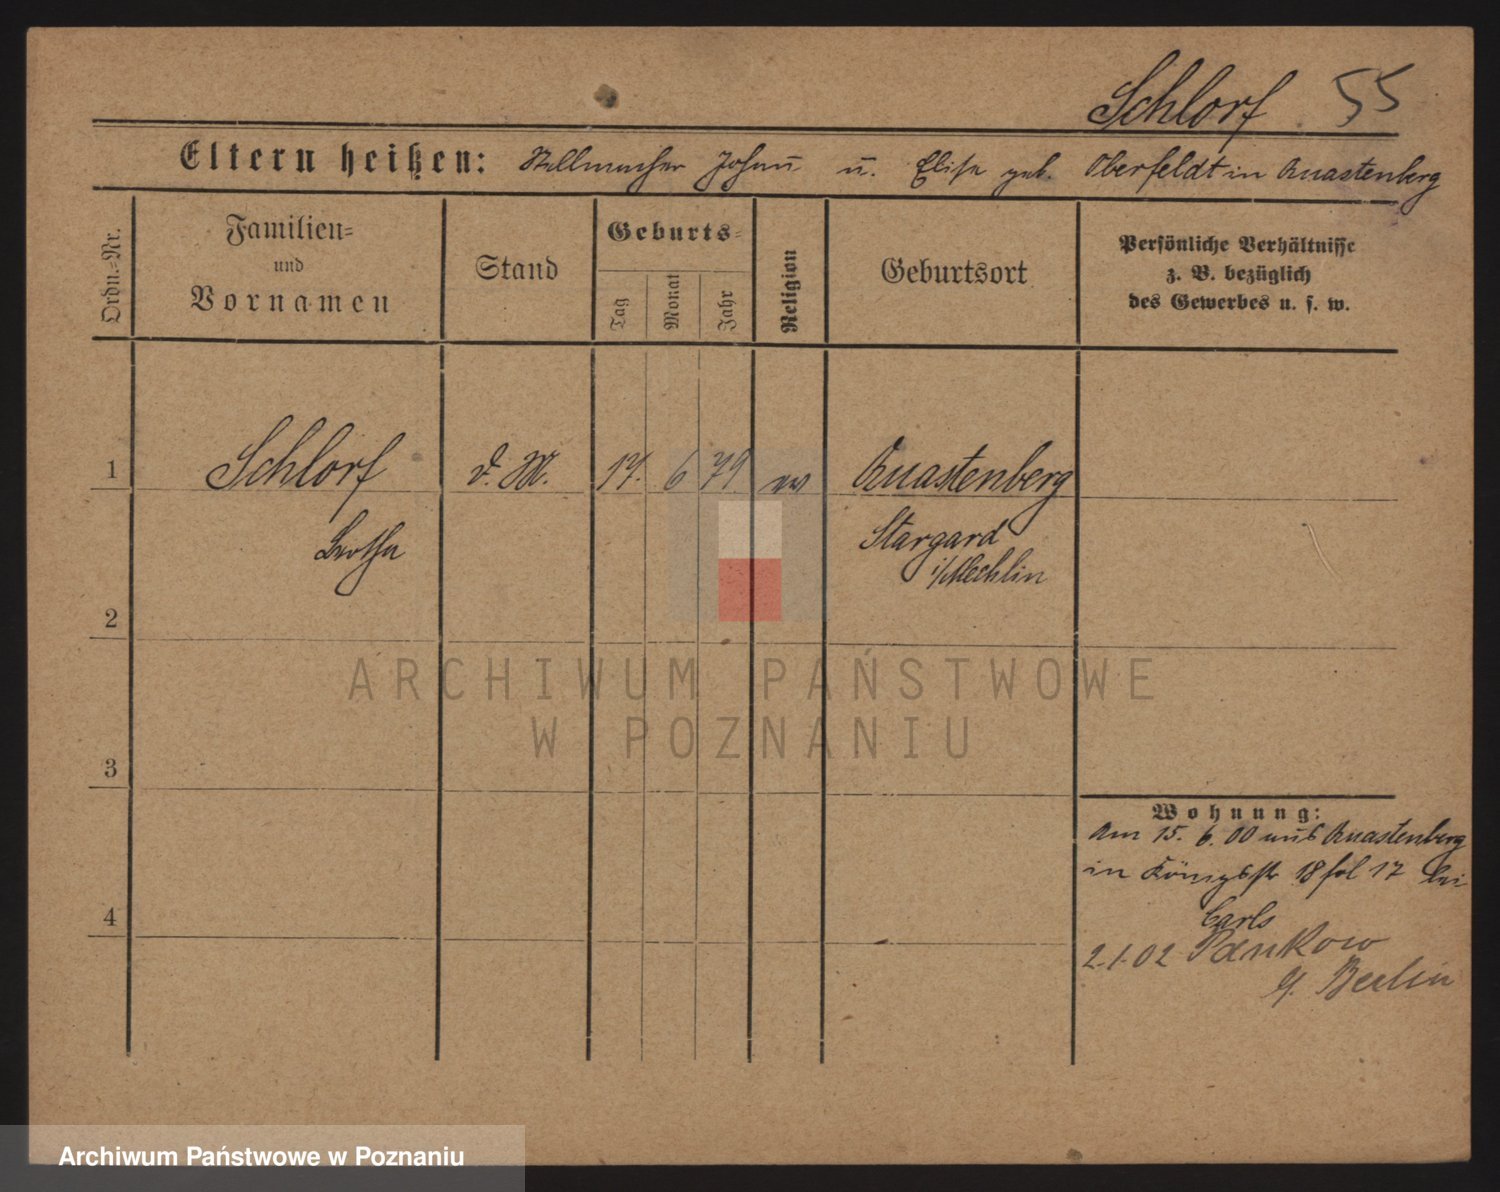 Schlorf 55
Eltern heißen: Stellmacher Johann u. Elise geb. Oberfeldt in Quastenberg
Ordn.-Nr.
Familien-
und
Vornamen
Stand
Geburts-
Tag
Monat
Jahr
Religion
Geburtsort
Persönliche Verhältnisse
z. B. bezüglich
des Gewerbes u. s. w.
1 Schlorf d. M. 17. 6 79 ev Quastenberg
Bertha
Stargard
i/Mecklin
2
ARCHIWUM PAŃSTWOWE
W POZNANIU
3
Wohnung:
Am 15. 6. 00 aus Quastenberg
in Königsstr 18 fol 17 bei
4
Carls
2.1.02 Pankow
b/ Berlin
Archiwum Państwowe w Poznaniu